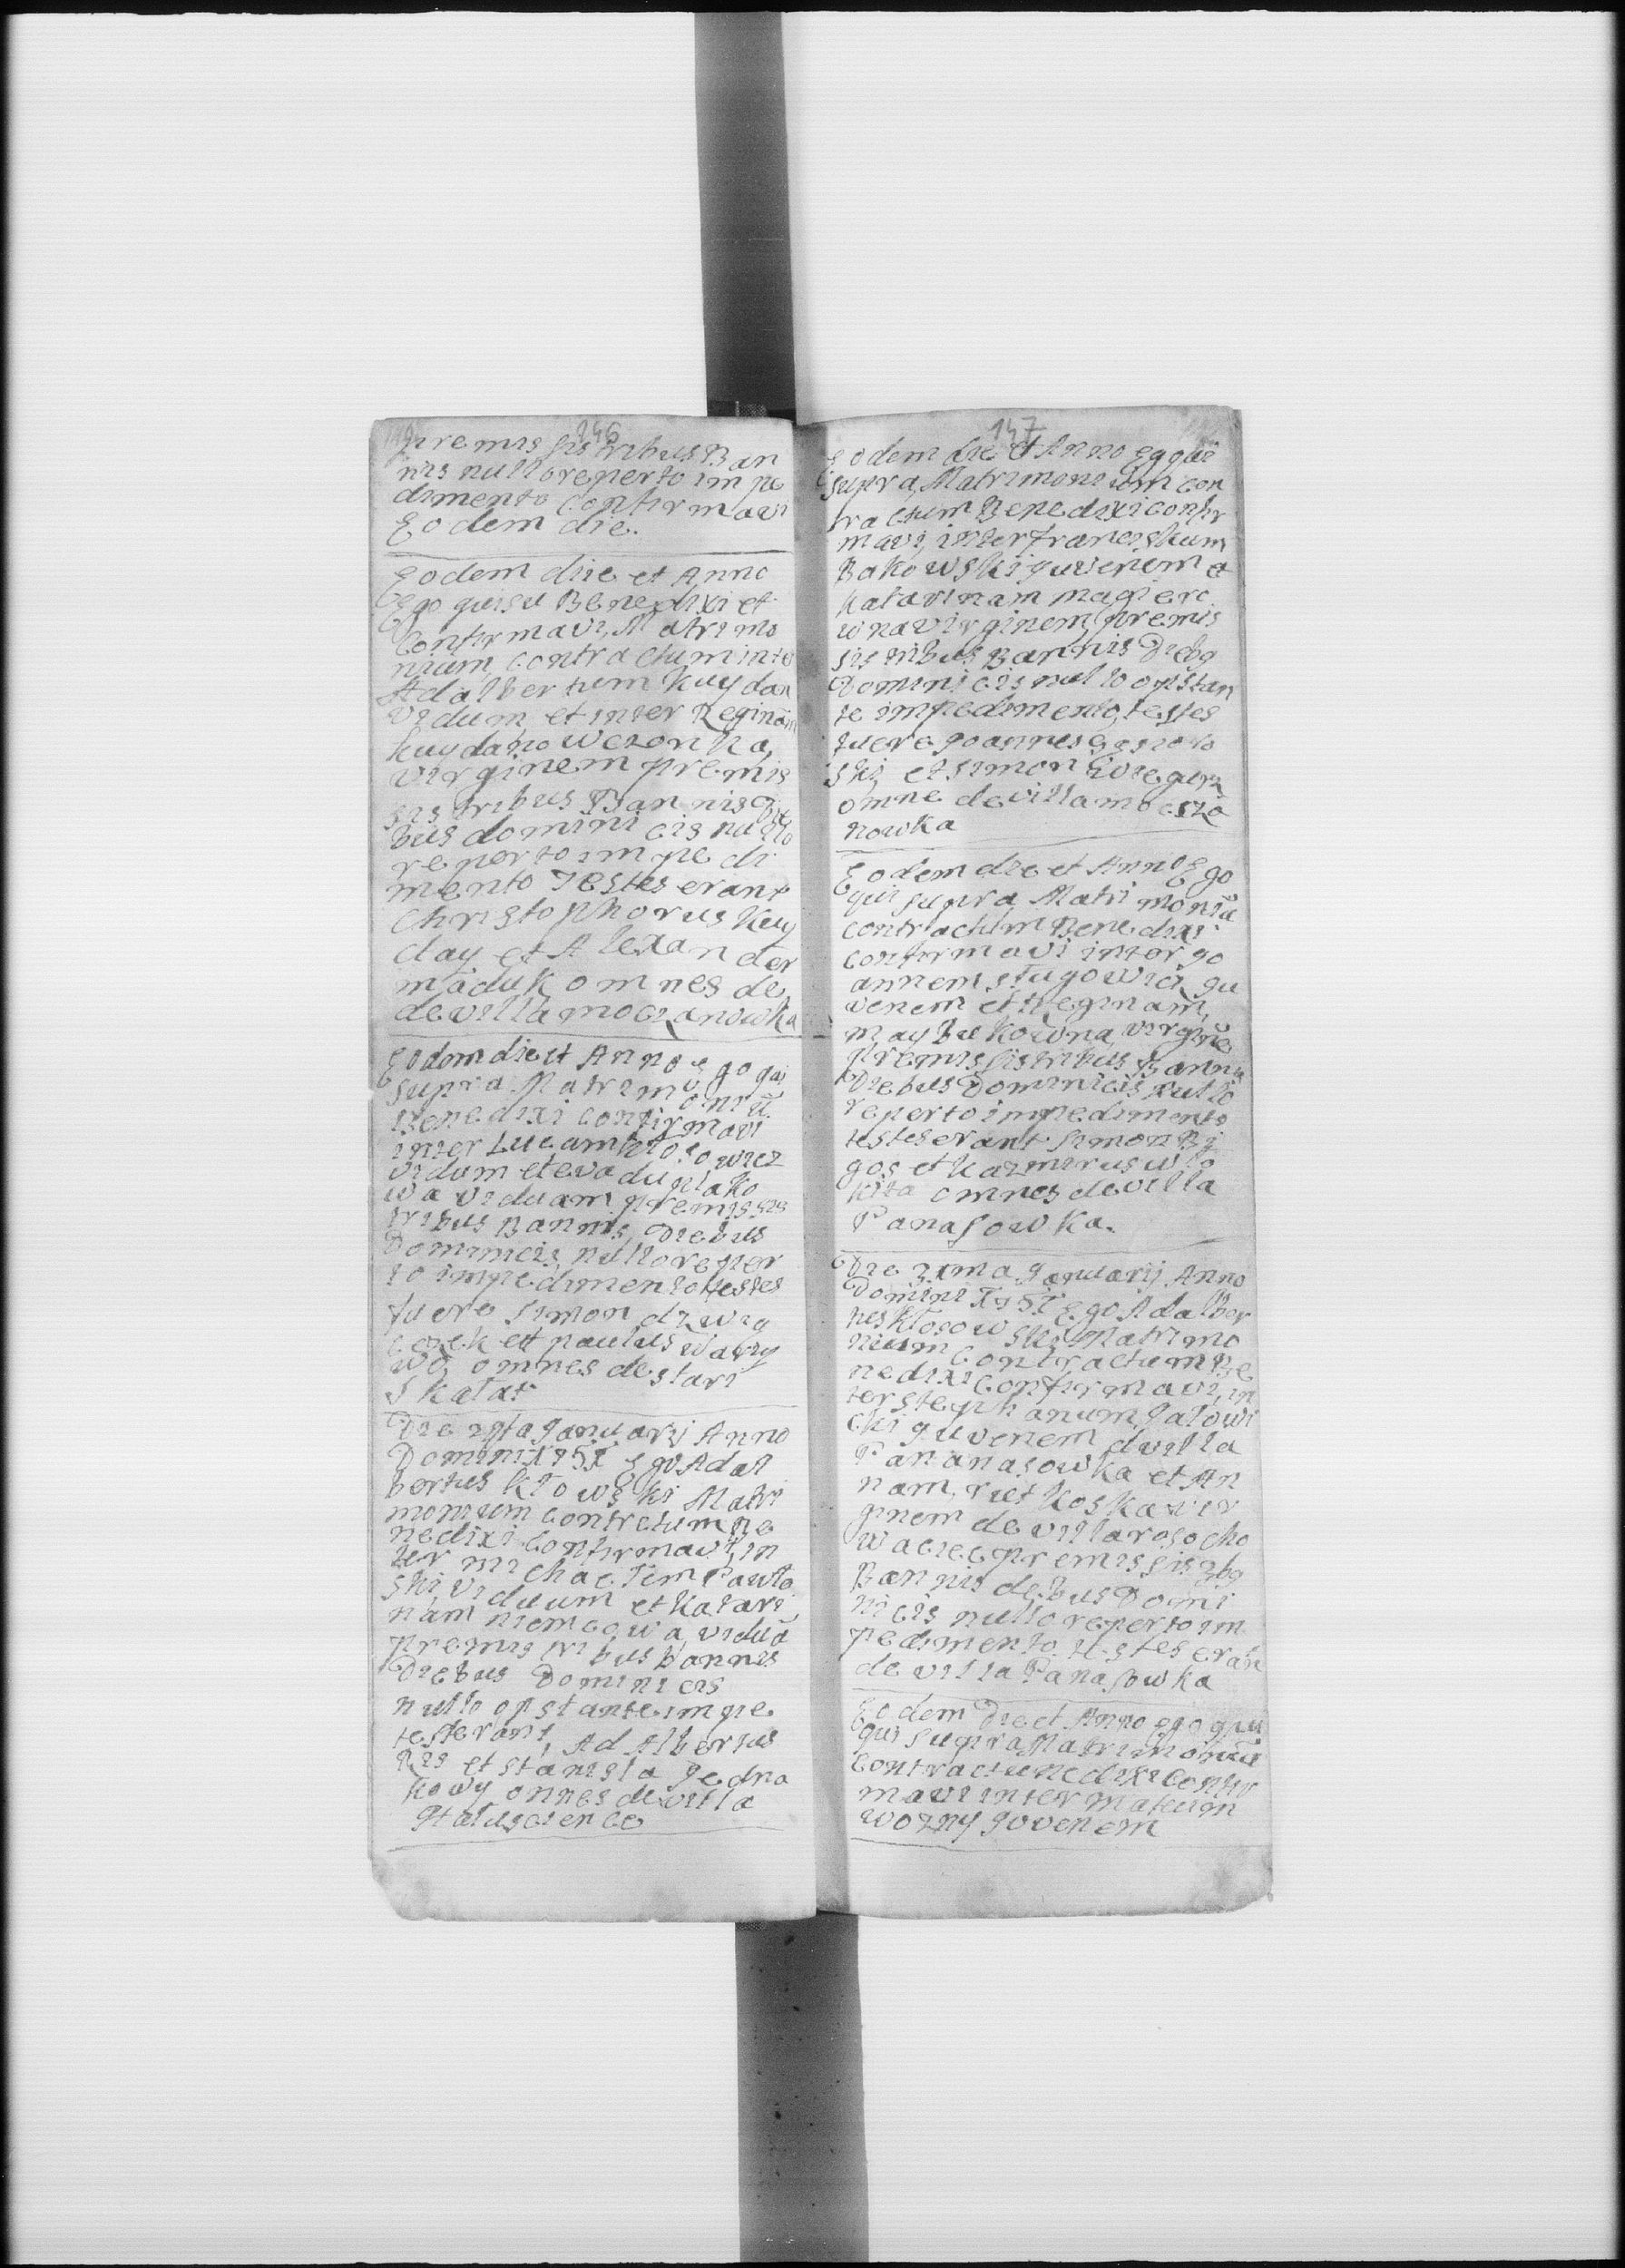 146
premis sis tribus Ban
nis nullo reperto impe
dimento confirmavi
Eodem die.
Eodem die et Anno
Ego quisu Benedixi et
Confirmavi, Matrimo
nium, contractum inte
Adalbertum Kuydan
vidum et inter Reginam
kuydanowczonka,
virginem premis
sis tribus Bannis Die
bus dominicis nullo
reperto impedi
mento Testes erant
Christophorus Kuy
day et Alexander
maduk omnes de
de villa moczanowka
Eodem die et Anno ego qui
supra Matrimoniu
Benedixi confirmavi
inter Lucam
vidum et eva duplako
wa viduam premissis
tribus Bannis, Diebus
Dominicis, nullo reper
to impedimento testes
fuere Simon dzwig
czek et paulus
wo, omnes de stari
Skalat
Die Januarij Anno
Domini 1751 Ego Adal
bertus Kłowski Matri
monium contrctum Be
nedixi confirmavi, in
ter michaelem Pawlo
ski, viduum et Katari
nam niemcowa, vidua
premis tribus bannis
Diebus Dominicis
nullo opstante impe
testerant, Adalbertus
Ris et stanisla Jedna
kowy onnes de villa
Haluscience
147
Eodem die et Anno Ego qui
supra, Matrimonium con
tractum Benedixi confir
mavi, inter Franciskum
Bakowski juvenem e
Katarinam magierc
wna virginem, premis
sis tribus Bannis Diebg
Dominicis nullo opstan
te impedimento, testes
fuere Joannes
ski, et simon
omne de villa mocza
nowka
Eodem die et Anno Ego
qui supra Matrimoniu
contractum Benedixi
confirmavi inter Jo
annem sługowicz ju
venem et Reginam,
maybukowna, virgine
premissis tribus Bannis
Diebus Dominicis nullo
reperto impedimento
testes erant Simon Bi
gos et Kazmirus wło
kita omnes de villa
Panasowka.
Die 21ma Januarij Anno
Domini 1751 Ego Adalber
tus Kłosowski Matrimo
nium contractum Be
nedixi confirmavi, in
ter stephanum Jałowi
cki juvenem dvilla
Pananasowka et An
nam, rutkoska vir
ginem de villa rosocho
waciec premissis 3bg
Bannis debus Domi
nicis nullo reperto im
pedimento testes erant
de villa Panasowka
Eodem Die et Anno ego qui
qui supra Matrimoniu
contractu nedixi confir
mavi inter mateum
wozny Jovenem